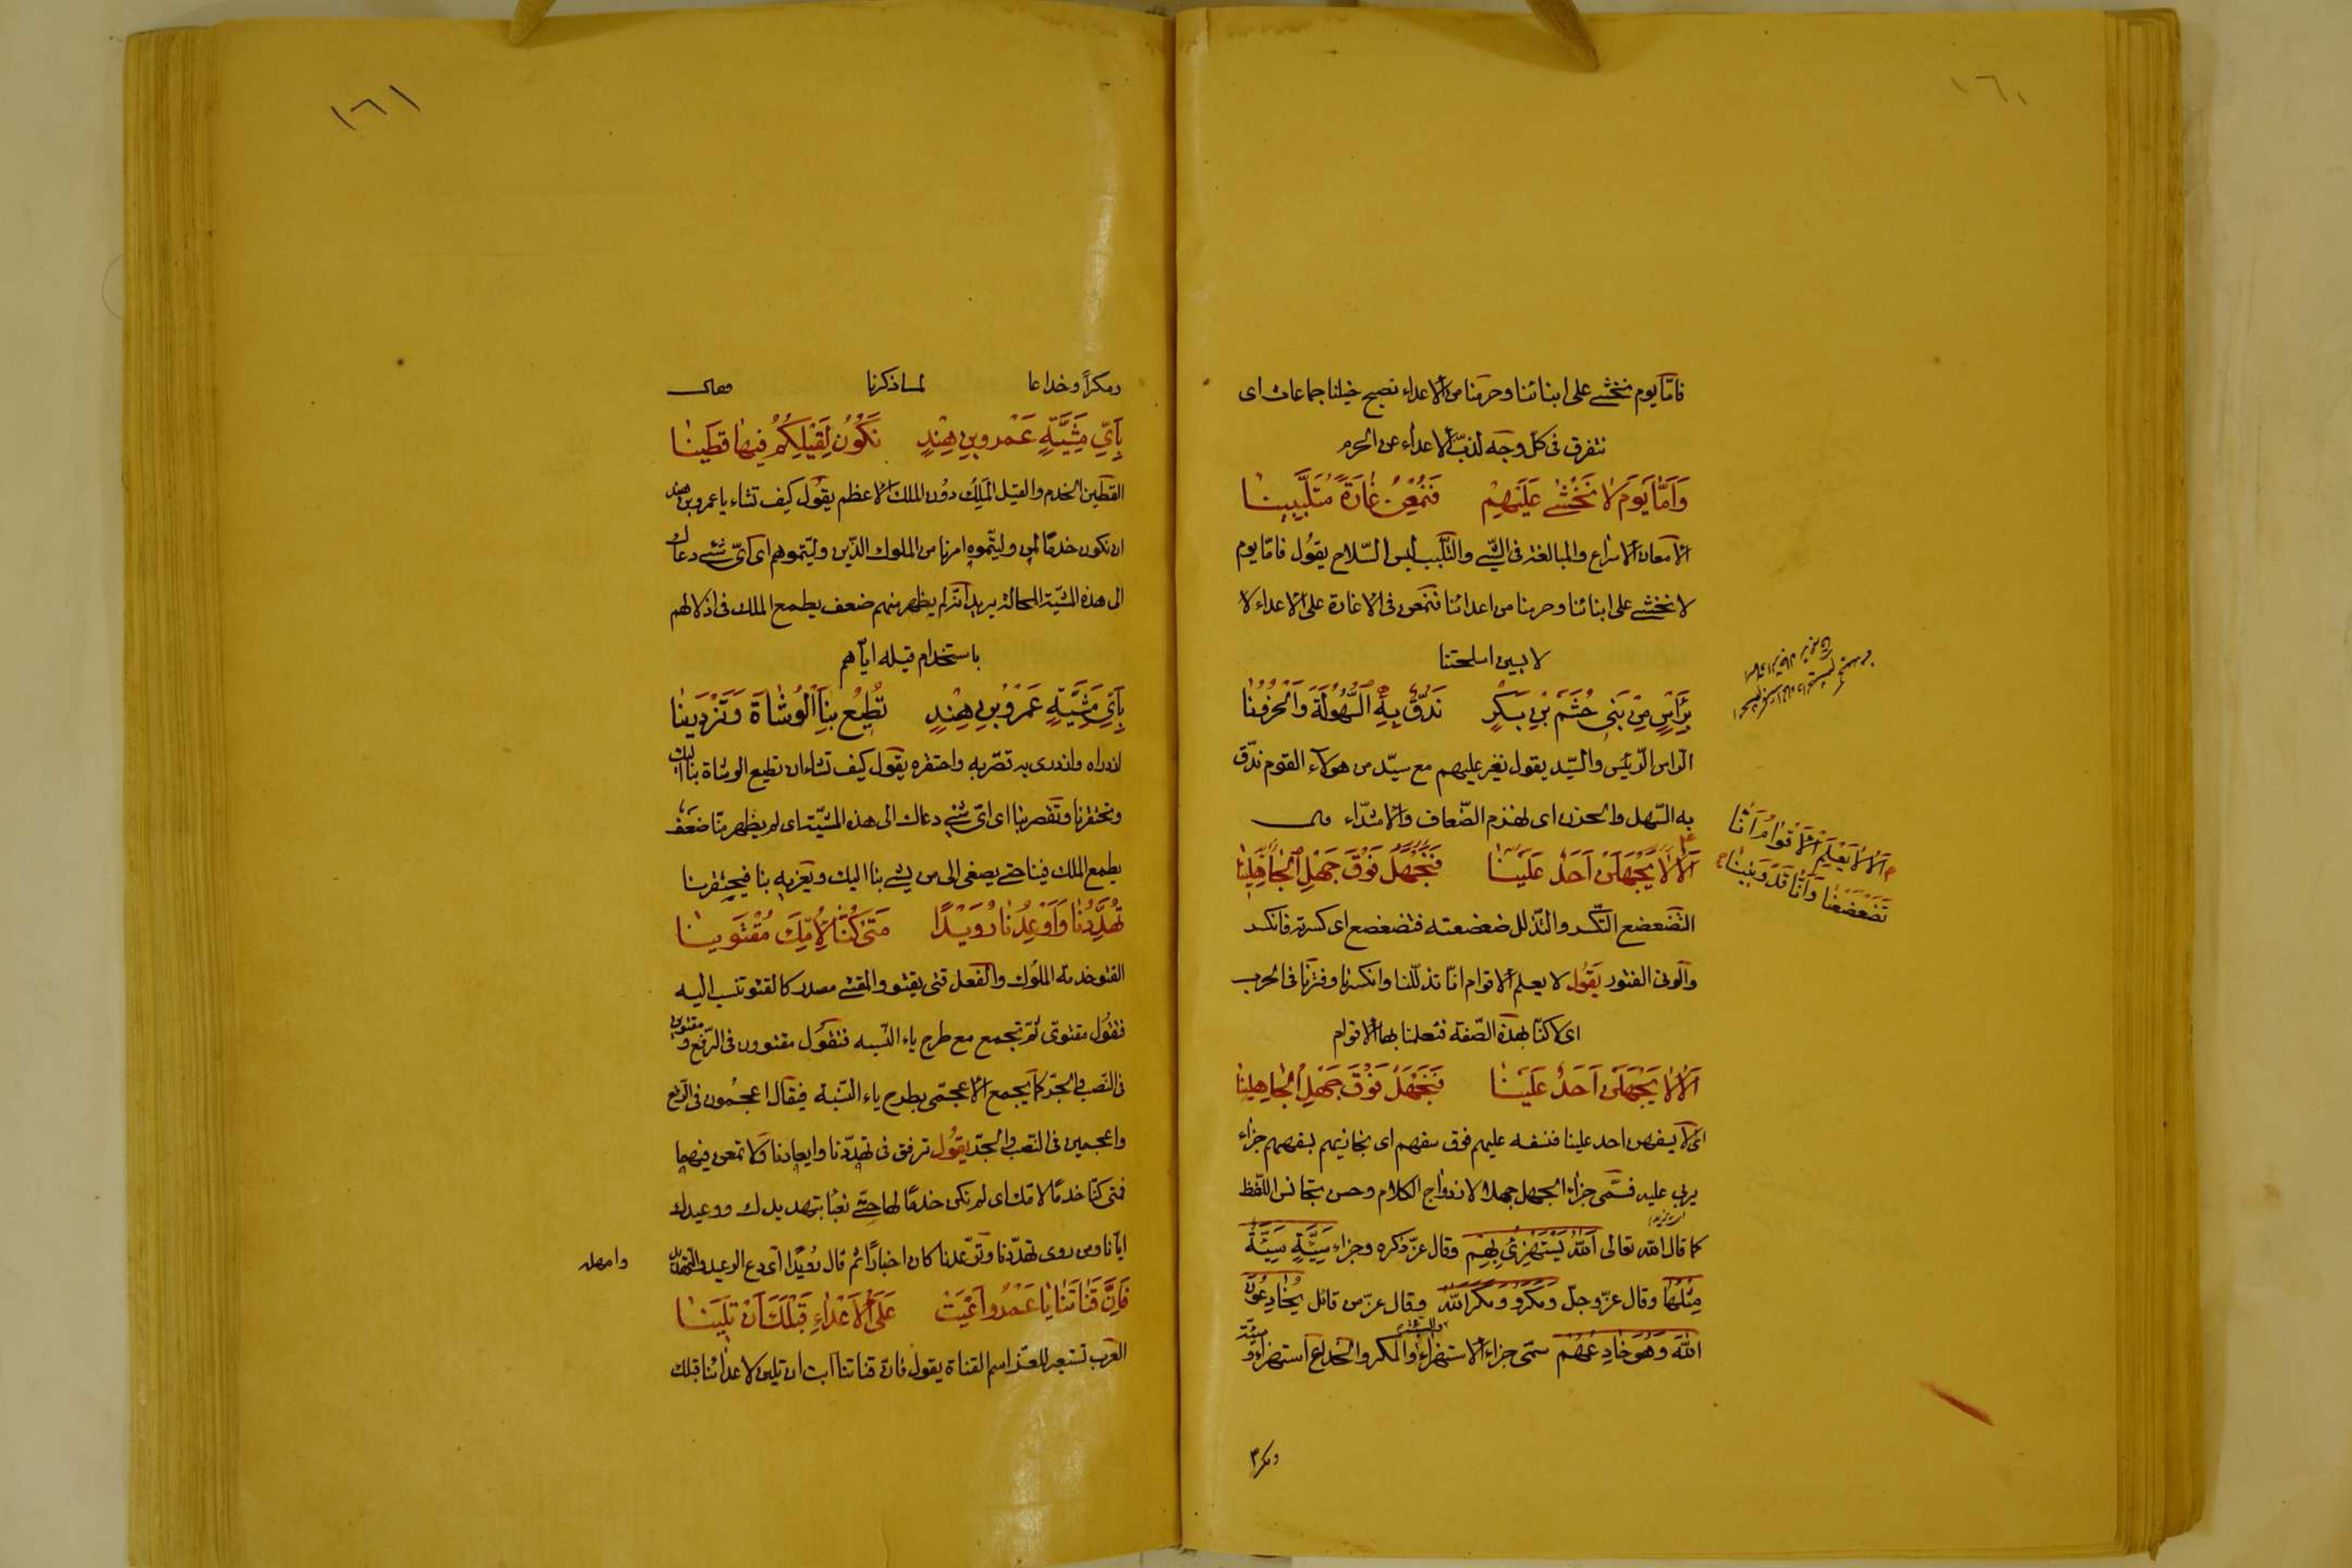 ١٦١
فامّا يوم نخشى على ابنائنا وحرمنا من الاعداء تصبح خيلنا جماعات اى
تتفرق فى كلّ وجه لذبّ الاعداء عن الحرم
وَاَمَّا يَوْمَ لا نَخْشٰى عَلَيْهِمْ فَنُمْعِنُ غٰارَةً مُتَلَبِّبِينٰا
الامعان الاسراع والمبالغة فى الشّىء والتّلبّب لبس السّلاح يقول فامّا يوم
لا نخشى على ابنائنا وحرمنا من اعدائنا فنمعن فى الاغارة على الاعداء لا
لابسين اسلحتنا
بِرَأْسٍ مِنْ بَنِى جُشَمِ بْنِ بَكْرٍ نَدُقُّ بِهِ السُّهُولَةَ وَالْحُزُونٰا
الرّاس الرّئيس والسّيّد يقول نغير عليهم مع سيّد من هؤلاء القوم ندّق
به السّهل والحزن اى نهزم الضّعاف والاشدّاء
اَلاٰ لاٰ يَعْلَمُ الْاَقْوٰامُ اَنّٰا
تَضَعْضَعْنٰا وَاَنّٰا قَدْ وَنِينٰا
اَلاٰ لاٰ يَجْهَلَنْ اَحَدٌ عَلَيْنٰا فَنَجْهَلَ فَوْقَ جَهْلِ الْجٰاهِلِينٰا
التّضعضع التّكسّر والتّذلل ضعضعته فتضعضع اى كسرته فانكسر
والونى الفتور يَقُول لا يعلم الاقوام انّا تذلّلنا وانكسرنا وفترنا فى الحرب
اى لا كنّا بهذه الصّفة فتعلمنا بها الاقوام
اَلاٰ لاٰ يَجْهَلَنْ اَحَدٌ عَلَيْنٰا فَنَجْهَلَ فَوْقَ جَهْلِ الْجٰاهِلِينٰا
اى لا يسفهن احد علينا فنسفه عليهم فوق سفههم اى نجازيهم بسفههم جزاء
يربى عليه فسّمى جزاء الجهل جهلا لازدواج الكلام وحسن تجانس اللّفظ
كما قال الله تعالى اَللّٰهُ يَسْتَهْزِئُ بِهِمْ وقال عزّ ذكره وجزاء سَيِّئَةٍ سَيِّئَةٌ
مِثْلُهٰا وقال عزّ وجلّ وَمَكَرُوا وَمَكَرَ اللّٰهُ وقال عزّ من قائل يُخٰادِعُونَ
اللّٰهَ وَهُوَ خٰادِعُهُمْ سمّى جزاء الاستهزاء والسيّئة والمكر والخداع استهزاء وسيئة
ومكرا
١٦١
ومكراً وخداعا لما ذكرنا
بِاَىِّ مَشِيَّةٍ عَمْرو بْنِ هِنْدٍ نَكُونُ لِقَيْلِكُمْ فِيهٰا قَطِينٰا
القطين الخدم والقيل المَلِك دون الملك الاعظم يقول كيف تشاء يا عمرو بن هند
ان نكون خدمًا لمن وليتّموه امرنا من الملوك الذّين وليّتموهم اى اىّ شىء دعاك
الى هذه المشيّة المحالة يريد انّه لم يظهر منهم ضعف يطمع الملك فى اذلالهم
باستخدام قيله ايّاهم
بِاَىِّ مَشِيَّةٍ عَمْرو بْنِ هِنْدٍ تُطِيعُ بِنَا الْوُشٰاةَ وَتَزْدَرِينٰا
ازدراه وازدرى به قصّر به واحتقره يقول كيف تشاء ان تطيع الوشاة بنا اليك
وتحتقرنا وتقصر بنا اى اىّ شىء دعاك الى هذه المشيّة اى لم يظهر منّا ضعف
يطمع الملك فينا حتى يصغى الى من يشى بنا اليك ويغريه بنا فيحتقرنا
تُهَدِّدُنٰا وَاَوْعِدْنٰا رُوَيْدًا مَتٰى كُنّٰا لِاُمِّكَ مُقْتَوِينٰا
القتو خدمة الملوك والفعل قتى يقتو والمقتى مصدر كالقتو تنسب اليه
فتقول مقتوىّ ثمّ تجمع مع طرح ياء النّسبه فتقول مقتوون فى الرّفع ومقتوين
فى النّصب والجرّ كما يجمع الاعجمى بطرح ياء النّسبة فيقال اعجمون فى الرّفع
واعجمين فى النّصب والجرّ يقُول ترفق فى تهدّدنا وايعادنا ولا تمعن فيهما
فمتى كنّا خدمًا لامّك اى لم نكن خدمًا لها حتّى نعبأ بتهديدك ووعيدك
ايّانا ومن روى تهدّدنا وتوّعدنا كان اخبارًا ثم قال رويدًا اى دع الوعيد والتهديد
وامهله
فَاِنَّ قَنٰاتَنٰا يٰا عَمْرُو اَعْيَتْ عَلَى الْاَعْدٰاءِ قَبْلَكَ اَنْ تَلِينٰا
العرب تستعير للعزّ اسم القناة يقول فانّ قناتنا ابت ان تلين لاعدائنا قبلك